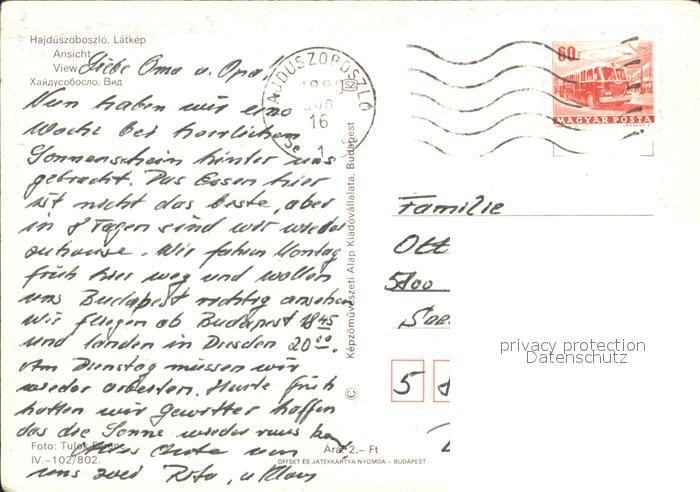 Hajdúszoboszló. Látkép
Ansicht
View
Хайдусобосло. Вид
Liebe Oma u. Opa!
Nun haben wir eine
Woche bei herrlichen
Sonnenschein hinter uns
gebracht. Das Essen hier
ist nicht das beste, aber
in 8 Tagen sind wir wieder
zuhause. Wir fahren Montag
früh hier weg und wollen
uns Budapest richtig ansehen
Wir fliegen ab Budapest 18 45
und landen in Dresden 20 00.
Am Dienstag müssen wir
wieder arbeiten. Heute früh
hatten wir Gewitter hoffen
das die Sonne wieder raus
Foto: Tulok
Alles Gute von
IV.–102/802.
uns zwei u. Klaus
Ára: 2,– Ft
OFFSET ÉS JÁTÉKKÁRTYA NYOMDA – BUDAPEST
© Képzőművészeti Alap Kiadóvállalata, Budapest
HAJDUSZOBOSZLÓ
16
1
60f
MAGYAR POSTA
Familie
Ott
5800
5
privacy protection
Datenschutz